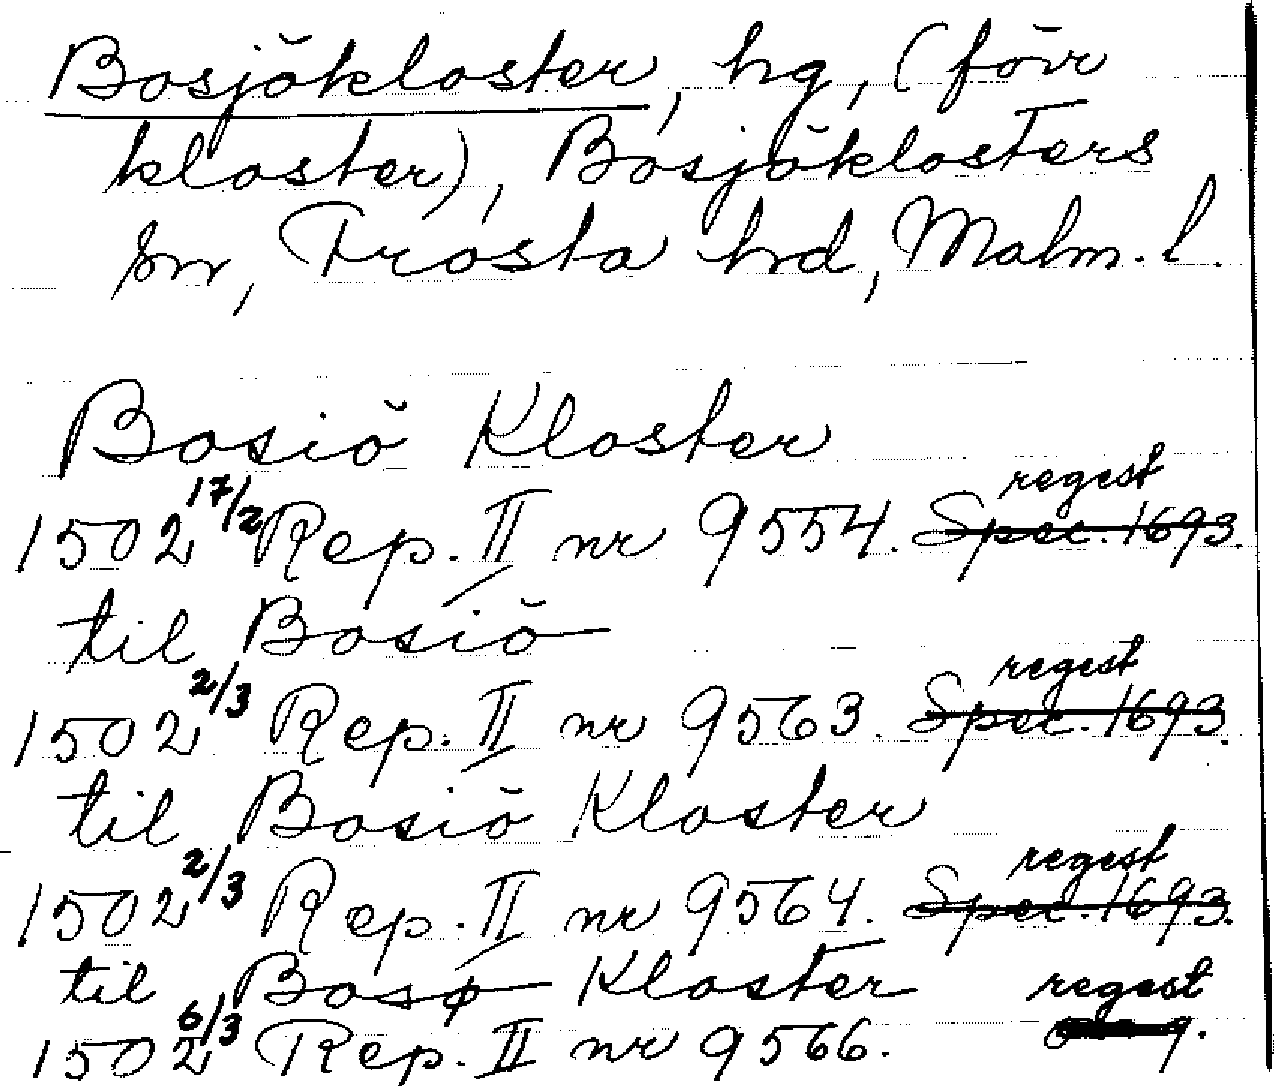 Bosjökloster, hg, (förr
kloster), Bosjöklosters
sn, Frosta hd, Malm. l.
Bosiö Kloster
1502 17/2 Rep. II nr 9554. Spec. 1693. regest
til Bosiö
1502 2/3 Rep. II nr 9563. Spec. 1693. regest
til Bosiö Kloster
1502 2/3 Rep. II nr 9564. Spec. 1693. regest
til Bosø Kloster
1502 6/3 Rep. II nr 9566. regest